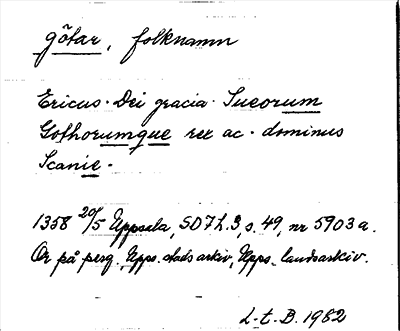 götar, folknamn
Ericus · Dei gracia · Sueorum
Gothorumque rex ac · dominus
Scanie ·
1358 20/5 Uppsala, SD7 h.3, s. 49, nr 5903a.
Or på perg. Upps. stads arkiv, Upps. landsarkiv.
L.t.B. 1982